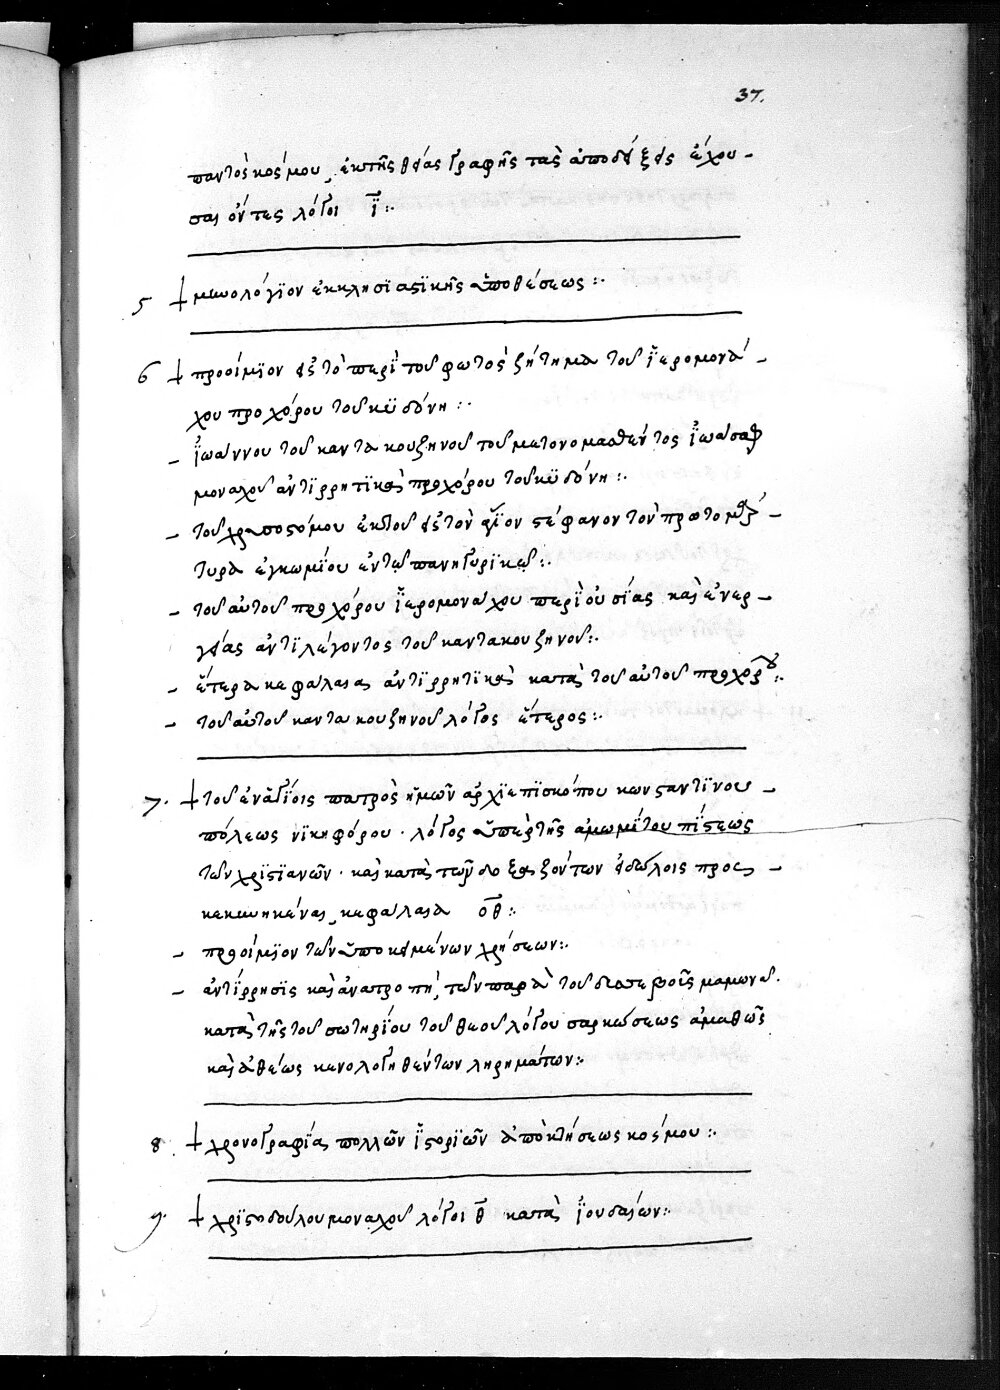 37.
παντὸς κόσμου, ἐκ τῆς θείας γραφῆς τὰς ἀποδείξεις ἔχου-
σαι ὄντες λόγοι ῑ:·
5 + μηνολόγϊον ἐκκλησϊαστϊκῆς ὑποθέσεως:·
6 + προοίμϊον εἰς τὸ περῒ τοῦ φωτὸς ζήτημα τοῦ ἱερομονά-
χου προχόρου τοῦ κϋδόνη:·
- ἰωάννου τοῦ καντακουζηνοῦ τοῦ μετονομασθέντος ἰωάσαφ
μοναχοῦ ἀντϊρρητϊκὸς προχόρου τοῦ κϋδόνη:·
- τοῦ χρυσοστόμου ἐκ τοῦ εἰς τὸν ἅγϊον στέφανον τὸν πρωτομάρ-
τυρα ἐγκωμίου ἐν τῷ πανηγυρϊκῷ:·
- τοῦ αὐτοῦ προχόρου ἱερομονάχου περῒ οὐσίας καὶ ἐνερ-
γείας ἀντϊλέγοντος τοῦ καντακουζηνοῦ:·
- ἕτερα κεφάλαια ἀντϊρρητϊκὰ κατὰ τοῦ αὐτοῦ προχόρου:·
- τοῦ αὐτοῦ καντακουζηνοῦ λόγος ἕτερος:·
7. + τοῦ ἐν ἁγΐοις πατρὸς ἡμῶν ἀρχϊεπϊσκόπου κωνσταντϊνου-
πόλεως νϊκηφόρου. λόγος ὑπὲρ τῆς ἀμωμήτου πίστεως
τῶν χρϊστϊανῶν. καὶ κατὰ τῶν δοξαζόντων εἰδώλοις προσ-
κεκυνηκέναι, κεφάλαια οθ:·
- προοίμϊον τῶν ὑποκειμένων χρήσεων:·
- ἀντίρρησϊς καὶ ἀνατροπὴ, τῶν παρὰ τοῦ δυσσεβοῦς μαμωνᾶ.
κατὰ τῆς τοῦ σωτηρΐου τοῦ θεοῦ λόγου σαρκώσεως ἀμαθῶς
καὶ ἀθέως κενολογηθέντων ληρημάτων:·
8 + χρονογραφΐας πολλῶν ἱστορϊῶν ἀπὸ κτήσεως κόσμου:·
9. + χρϊστοδούλου μοναχοῦ λόγοι θ̄ κατὰ ἰουδαίων:·